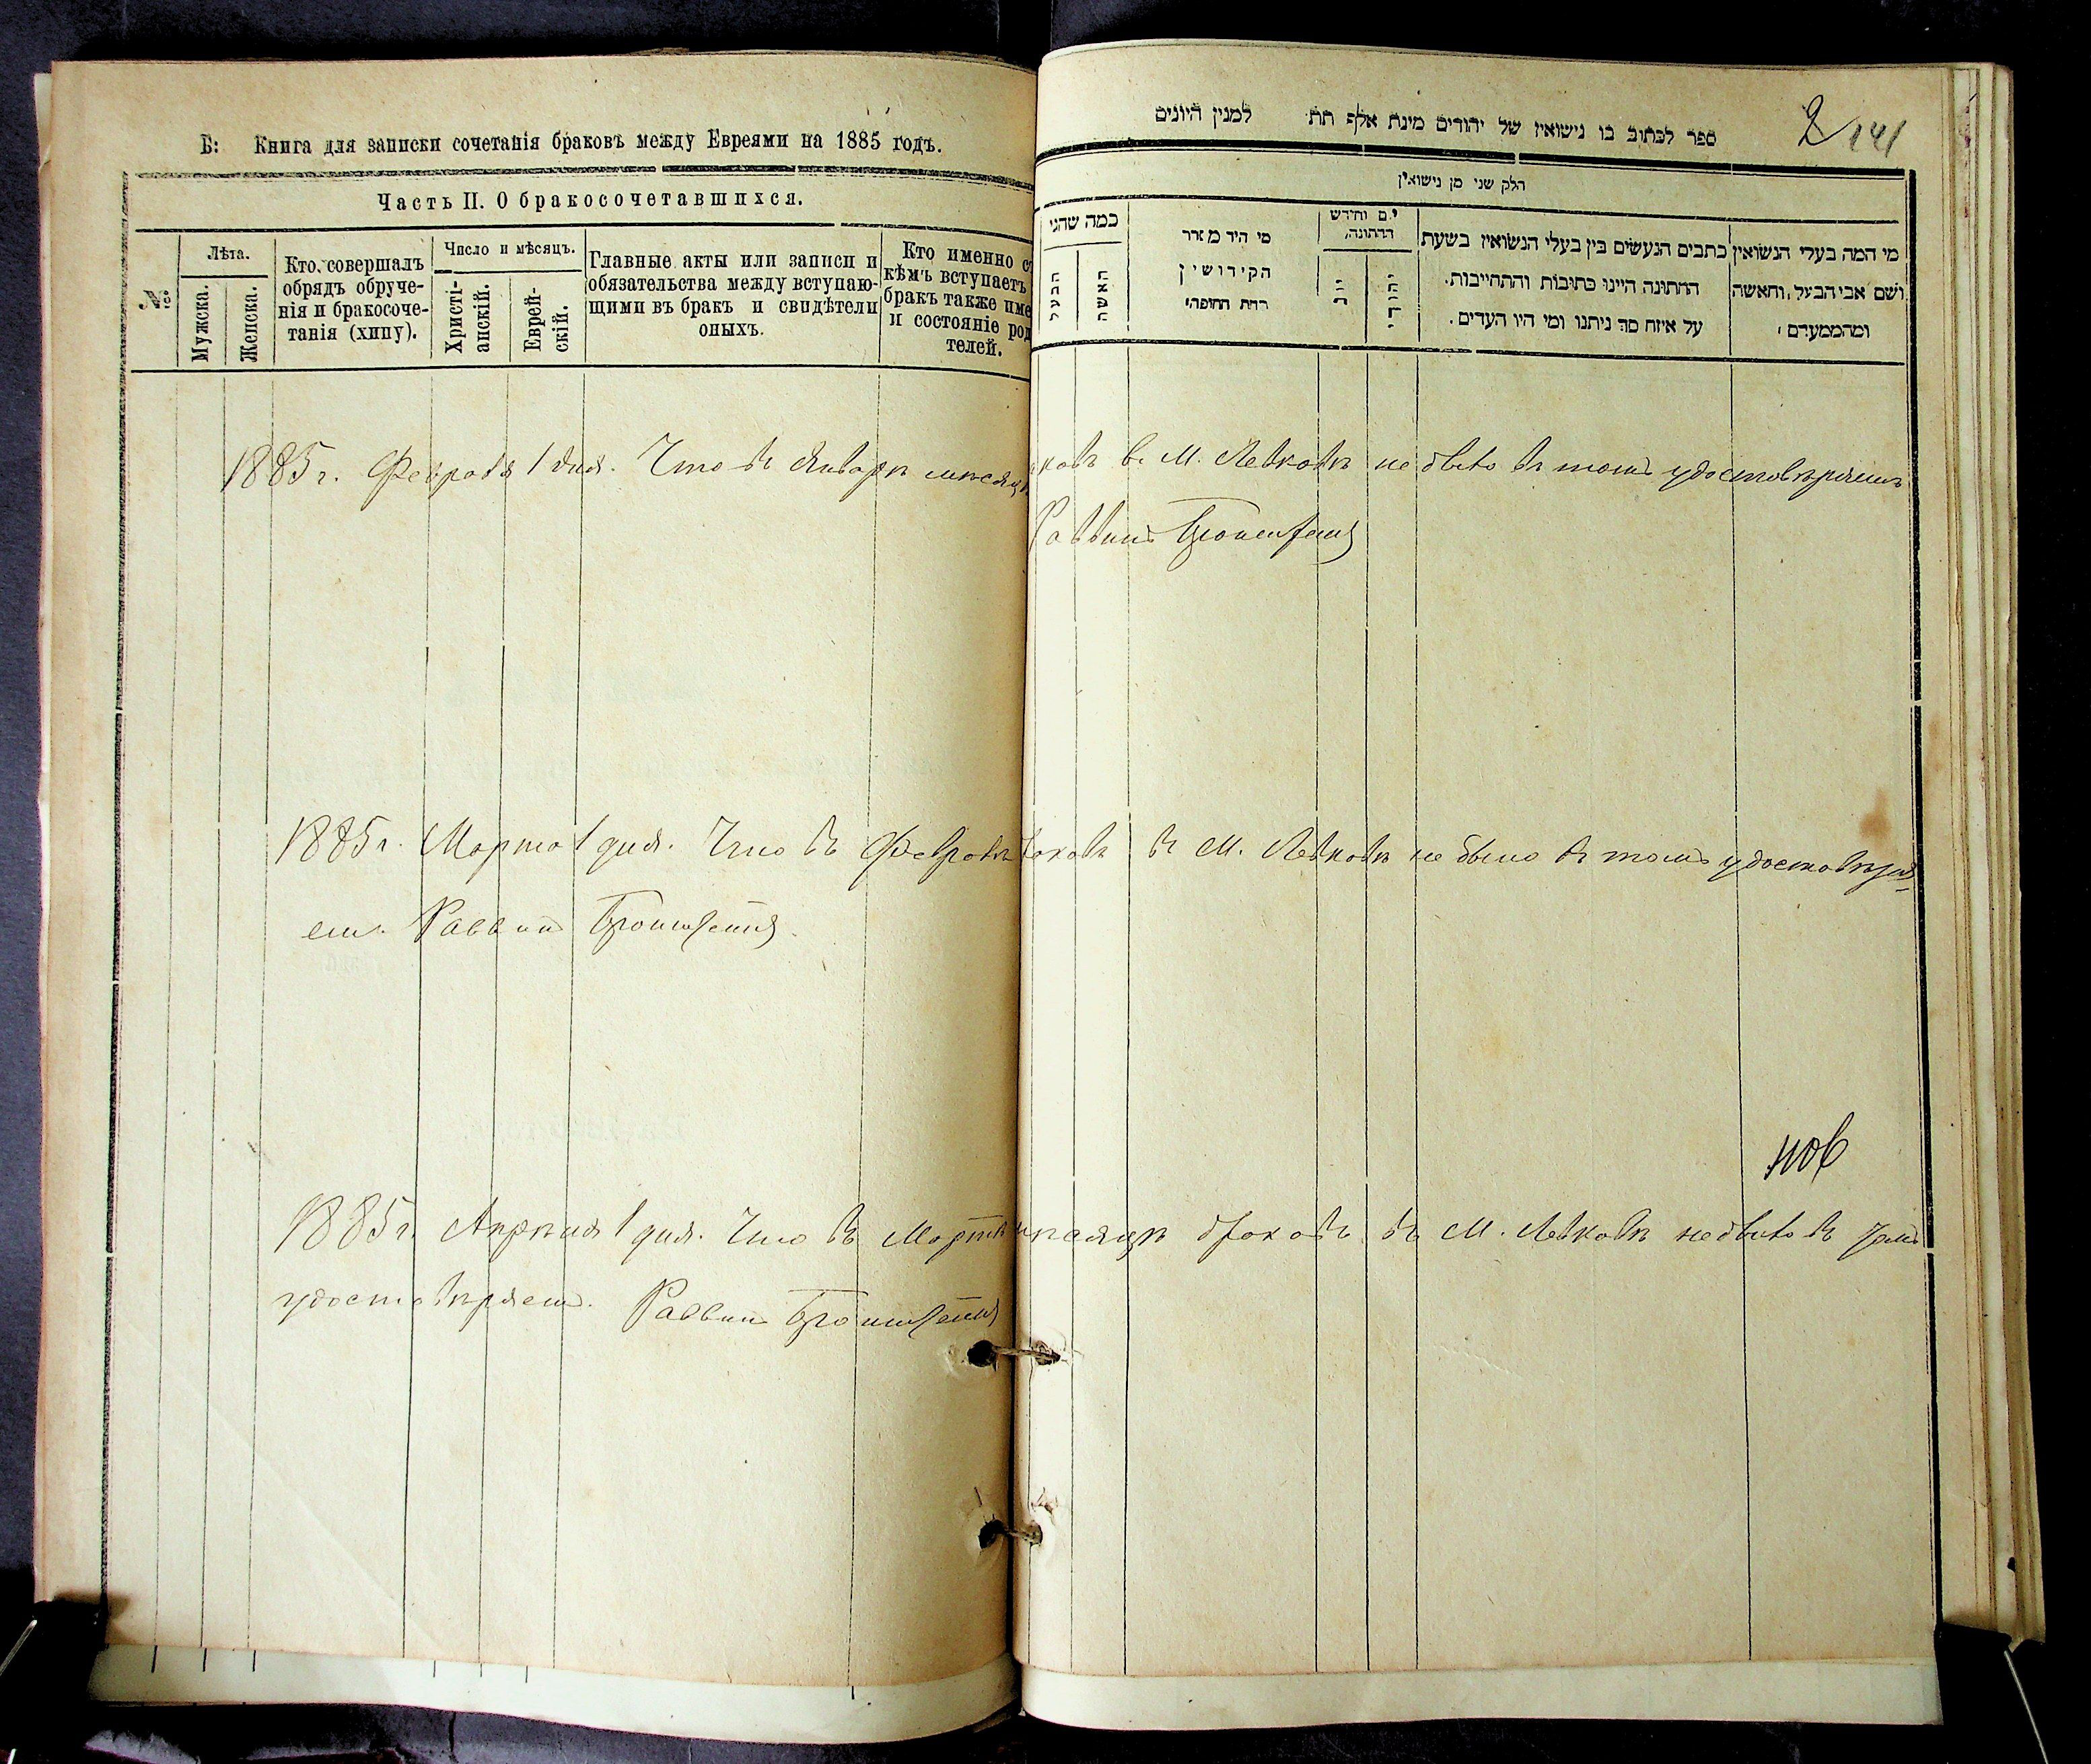 Б: Книга для записки сочетанія браковъ между Евреями на 1885 годъ.
Часть II. О бракосочетавшихся.
№
Лѣта.
Мужска.
Женска.
Кто совершалъ
обрядъ обруче-
нія и бракосоче-
танія (хипу).
Число и мѣсяцъ.
Христі-
анскій.
Еврей-
скій.
Главные акты или записи и
обязательства между вступаю-
щими въ бракъ и свидѣтели
оныхъ.
Кто именно с
кѣмъ вступаетъ
бракъ также име
и состояніе род
телей.
ספר לכתוב בו נישואין של יהודים מינת אלף תת למנין היונים
2 141
חלק שני מן נישואין
כמה שהני
הבעל
האשה
מי היד מזדר
הקידושין
החתונה,
יהודי
כתבים הנעשים בין בעלי הנשואין בשעת
החתונה היינו כתובות והתהייבות.
על איזח סך ניתנו ומי היו העדים.
מי המה בעלי הנשואין
ושם אבי הבעל, והאשה
ומהממעדם
1885 г. Февраля 1 дня. Что въ Январѣ мѣсяц ковъ в. М. Левковѣ не было въ томъ удостовѣряемъ
Раввинъ
1885 г. Марта 1 дня. Что въ Февралѣ раковъ въ М. Левковѣ не было въ томъ удостовѣря-
емъ. Раввинъ
нов
1885 г. Апрѣля 1 дня. Что въ Мартѣ мѣсяцѣ браковъ въ М. Левковѣ не было въ томъ
удостовѣряемъ. Раввинъ